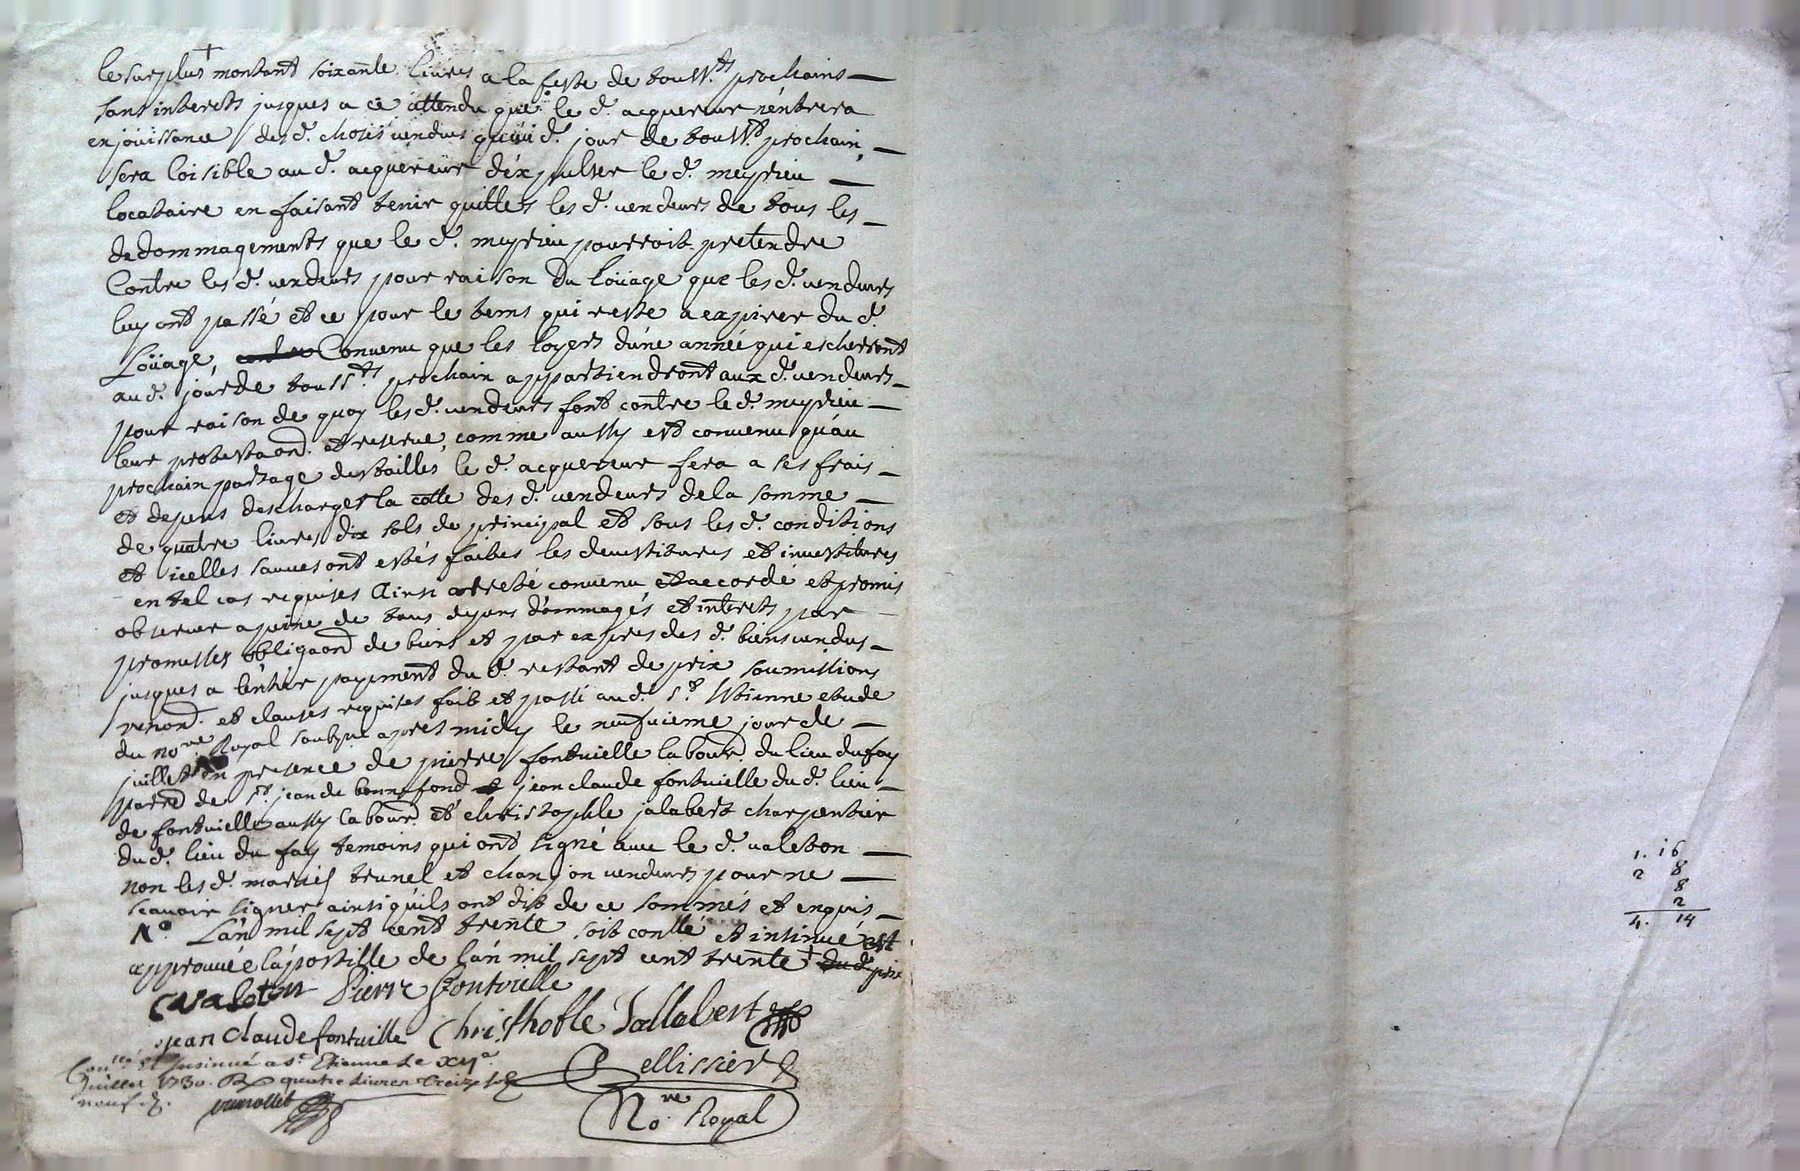 le surplus + montant soixante livres a la feste de touss.ts prochains
sans interets jusques a ce attendu que le d. acquereur n'entrera
en jouissance des d. choses vendues qu'au d. jour de touss.ts prochain,
sera loisible au d. acquereur d'expulser le d. meyrieu
locataire en faisant tenir quittes les d. vendeurs de tous les
dedommagements que le d. meyrieu pourroit pretendre
Contre les d. vendeurs pour raison du loüage que les d. vendeurs
luy ont passé et ce pour le tems qui reste a expirer du d.
Loüage, Convenu que les loyers d'une année qui escherront
au d. jour de touss.ts prochain appartiendront aux d. vendeurs
pour raison de quoy les d. vendeurs font contre le d. meyrieu
leur protestaon. et reserve, comme aussy est convenu qu'au
prochain partage des tailles le d. acquereur fera a ses frais
et depens descharger la cotte des d. vendeurs de la somme
de quatre livres dix sols de principal et sous les d. conditions
et icelles sauves ont estés faites les devestitures et investitures
en tel cas requises Ainsi arresté convenu et accordé et promis
observer a peine de tous depens dommages et interets par
promesses obligaon de biens et par expres des d. biens vendus
jusques a l'entier payement du d. restant de prix soumissions
renon. et clauses requises fait et passé au d. S.t Etienne etude
du no.re Royal soubz.né apres midy le neufvieme jour de
juillet en presence de pierre fontvielle labour. du lieu du fay
parr. de S.t jean de bonnefond jean claude fontvielle du d. lieu
de fontvielle aussy labour. et christophle jalabert charpentier
du d. lieu du fay temoins qui ont signé avec le d. valeton
non les d. brunel et vendeurs pour ne
scavoir signer ainsi qu'ils ont dit de ce sommés et enquis
L'an mil sept cent trente soit conllé et insinué est
approuvée l'apostille de l'an mil sept cent trente + du d. prix
Cvaleton Pierre fontvielle
jean Claude fontvielle Christhofle Jallabert
Con.llé et Insinué a S.t Etienne le XII.e
Juillet 1730. R quatre livres treize sols Pellissier
neuf d.
No.re Royal
1. 16
2 8
8
2
4. 14